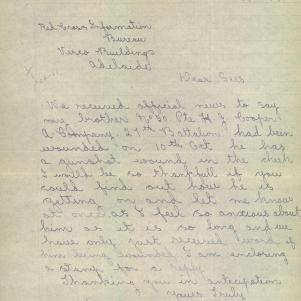 Red Cross Information
Bureau
Verco Buildings
Adelaide
Dear Sirs
We received official news to say
my brother No 50 Pte H. J. Cooper
A Company 27th Battalion had been
wounded on 10th Oct he has
a gunshot wound in the cheek
I would be so thankfull if you
could find out how he is
getting on and let me know
at once as I feel so anxious about
him as it is so long and we
have only just received word of
him being wounded. I am enclosing
a stamp for a reply
Thanking you in anticipation
Yours Truly